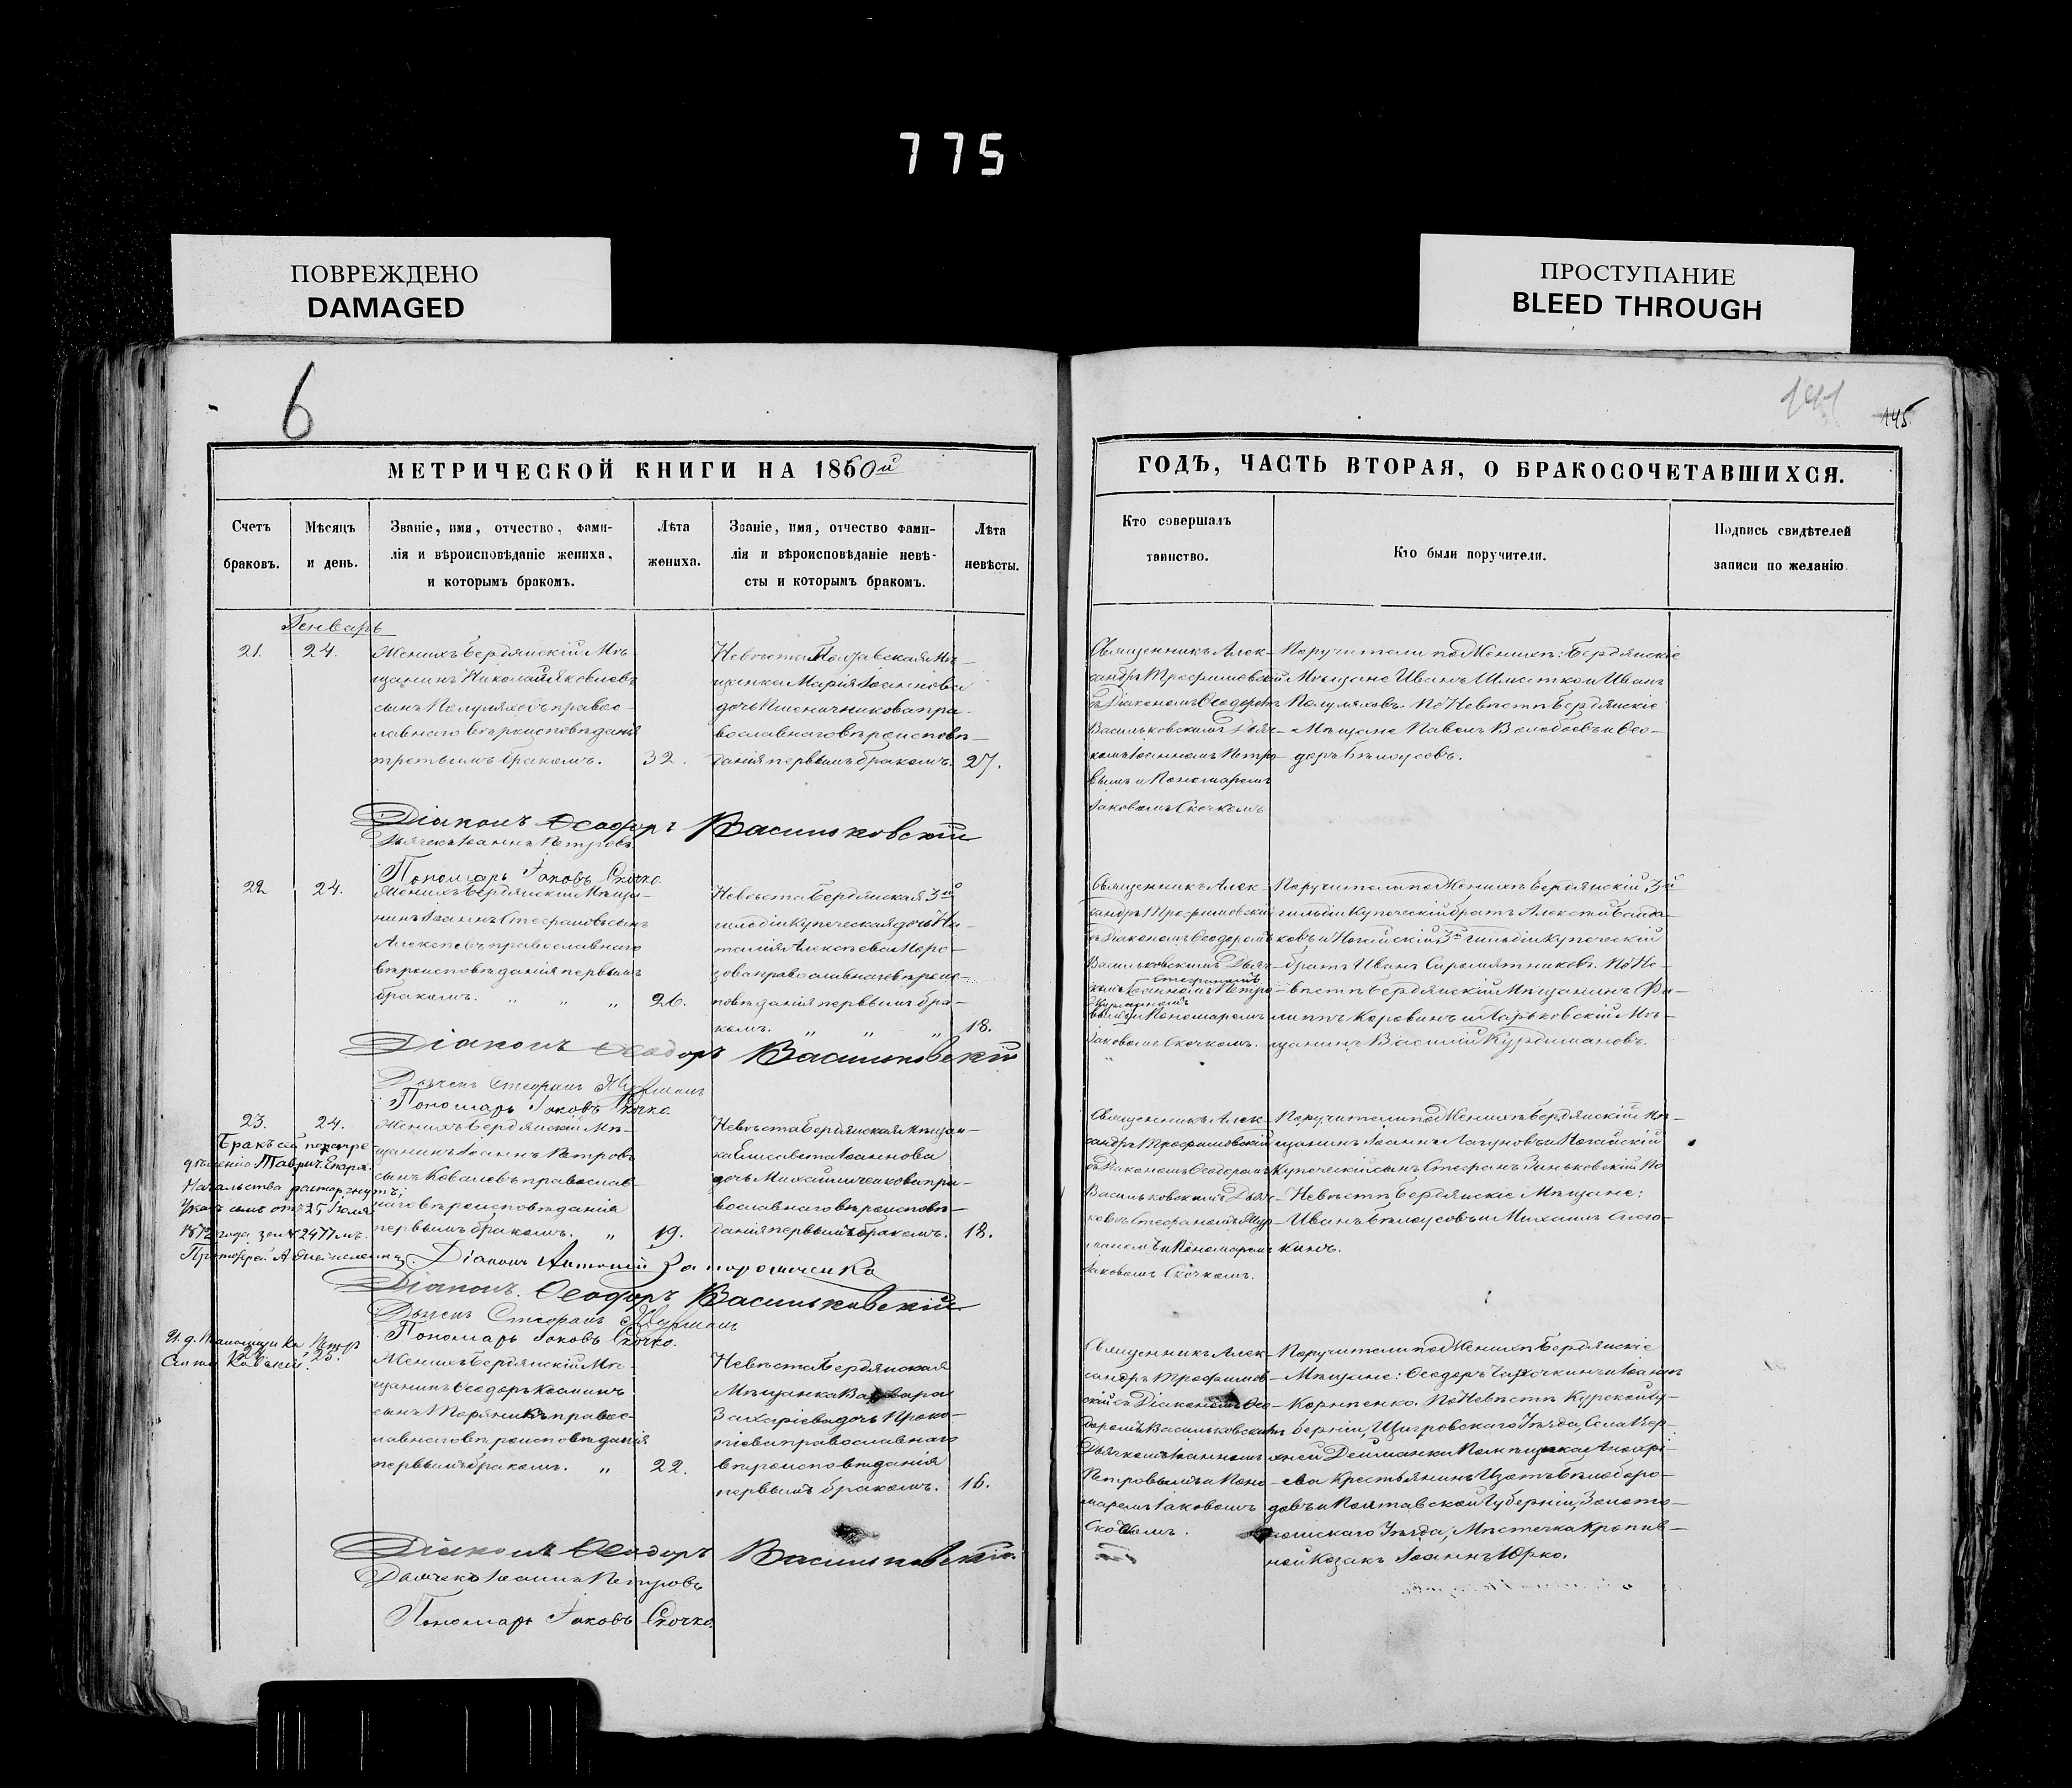 775
ПОВРЕЖДЕНО
DAMAGED
ПРОСТУПАНИЕ
BLEED THROUGH
6
141
145
МЕТРИЧЕСКОЙ КНИГИ НА 1860й
Счетъ
браковъ.
Мѣсяцъ
и день.
Званіе, имя, отчество, фами-
лія и вѣроисповѣданіе жениха,
и которымъ бракомъ.
Лѣта
жениха.
Званіе, имя, отчество фами-
лія и вѣроисповѣданіе невѣ-
сты и которымъ бракомъ.
Лѣта
невѣсты.
ГОДѢ, ЧАСТЬ ВТОРАЯ, О БРАКОСОЧЕТАВШИХСЯ.
Кто совершалъ
таинство.
Кто были поручители.
Подпись свидѣтелей
записи по желанію
Генварь
21.
24.
Женихъ Бердянскій Мѣ-
щанинъ Николай Яковлевъ
сынъ Полуляховъ правос-
лавнаго вѣроисповѣданія
третьимъ бракомъ.
32.
Невѣста Мѣ-
щанка Марія Іоаннова
дочь Пшеничникова пра-
вославнаго вѣроисповѣ-
данія первымъ бракомъ.
27.
Священникъ Алек-
сандръ Трофимовскій
съ Діакономъ Ѳеодоромъ
Васильковскимъ Дьяч-
комъ Іоанномъ Петро-
вымъ и Пономаремъ
Іаковомъ Скочкомъ
Поручители по Женихѣ: Бердянскіе
Мѣщане Иванъ и Иванъ
Полуляховъ. По Невѣстѣ Бердянскіе
Мѣщане Павелъ и Ѳео-
доръ Бѣлоусовъ.
Діаконъ Ѳеодоръ Васильковскій
Дьячекъ Іоаннъ Петровъ
Пономарь Іаковъ Скочко.
22
24.
Женихъ Бердянскій Мѣща-
нинъ Іоаннъ Стефановъ сынъ
Алексѣевъ православнаго
вѣроисповѣданія первымъ
бракомъ. " " "
26.
Невѣста Бердянская 3й
гильдіи Купеческая дочь На-
талія Алексѣева Моро-
зова православнаго вѣроис-
повѣданія первымъ бра-
комъ. " " "
18.
Священникъ Алек-
сандръ Трофимовскій
съ Діакономъ Ѳеодоромъ
Васильковскимъ Дьяч-
комъ Стефаномъ
Іоанномъ Петро-
вымъ и Пономаремъ
Іаковомъ Скочкомъ.
Поручители по Женихѣ Бердянскій 3й
гильдіи Купеческій братъ Алексѣй
и Ногайскій 3й гильдіи Купеческій
братъ Иванъ Сыромятниковъ. По Не-
вѣстѣ Бердянскій Мѣщанинъ Фи-
липпъ Коровинъ и Харьковскій Мѣ-
щанинъ Василій Курдимановъ.
Діаконъ Ѳеодоръ Васильковскій
Дьячекъ Стефанъ
Пономарь Іаковъ Скочко
23.
24.
Женихъ Бердянскій Мѣ-
щанинъ Іоаннъ Петровъ
сынъ Ковалевъ православ-
наго вѣроисповѣданія
первымъ бракомъ. "
19.
Невѣста Бердянская Мѣщан-
ка Елисавета Іоаннова
дочь Михайличенкова пра-
вославнаго вѣроисповѣ-
данія первымъ бракомъ.
18.
Бракъ сей
Таврич. Епарх.
Начальства расторгнутъ,
Указъ отъ 25 Іюля
1872 года за № 2477мъ.
Священникъ Алек-
сандръ Трофимовскій
съ Діакономъ Ѳеодоромъ
Васильковскимъ Дьяч-
комъ Стефаномъ
и Пономаремъ
Іаковомъ Скочкомъ.
Поручители по Женихѣ Бердянскій Мѣ-
щанинъ Іоаннъ Лагуновъ и Ногайскій
Купеческій сынъ Стефанъ Зиньковскій По
Невѣстѣ Бердянскіе Мѣщане:
Иванъ Бѣлоусовъ и Михаилъ
Діаконъ Антоній
Діаконъ Ѳеодоръ Васильковскій
Дьячекъ Стефанъ
Пономарь Іаковъ Скочко.
25.
Женихъ Бердянскій Мѣ-
щанинъ Ѳеодоръ Козминъ
сынъ правос-
лавнаго вѣроисповѣданія
первымъ бракомъ. "
22.
Невѣста Бердянская
Мѣщанка Варвара
Захаріева дочь Проко-
піева православнаго
вѣроисповѣданія
первымъ бракомъ.
16.
Священникъ Алек-
сандръ Трофимов-
скій съ Діакономъ Ѳео-
доромъ Васильковскимъ
Дьячкомъ Іоанномъ
Петровымъ и Поно-
маремъ Іаковомъ
Скочкомъ.
Поручители по Женихѣ Бердянскіе
Мѣщане: Ѳеодоръ и Іоаннъ
Корніенко. По Невѣстѣ Курской Гу-
берніи, Щигровскаго Уѣзда, Села Вер-
хней
Крестьянинъ Изотъ Бѣлоборо-
довъ и Полтавской Губерніи, Золото-
ношскаго Уѣзда, Мѣстечка Кропив-
ной Козакъ Іоаннъ Юрко.
Діаконъ Ѳеодоръ Васильковскій.
Дьячекъ Іоаннъ Петровъ
Пономарь Іаковъ Скочко.